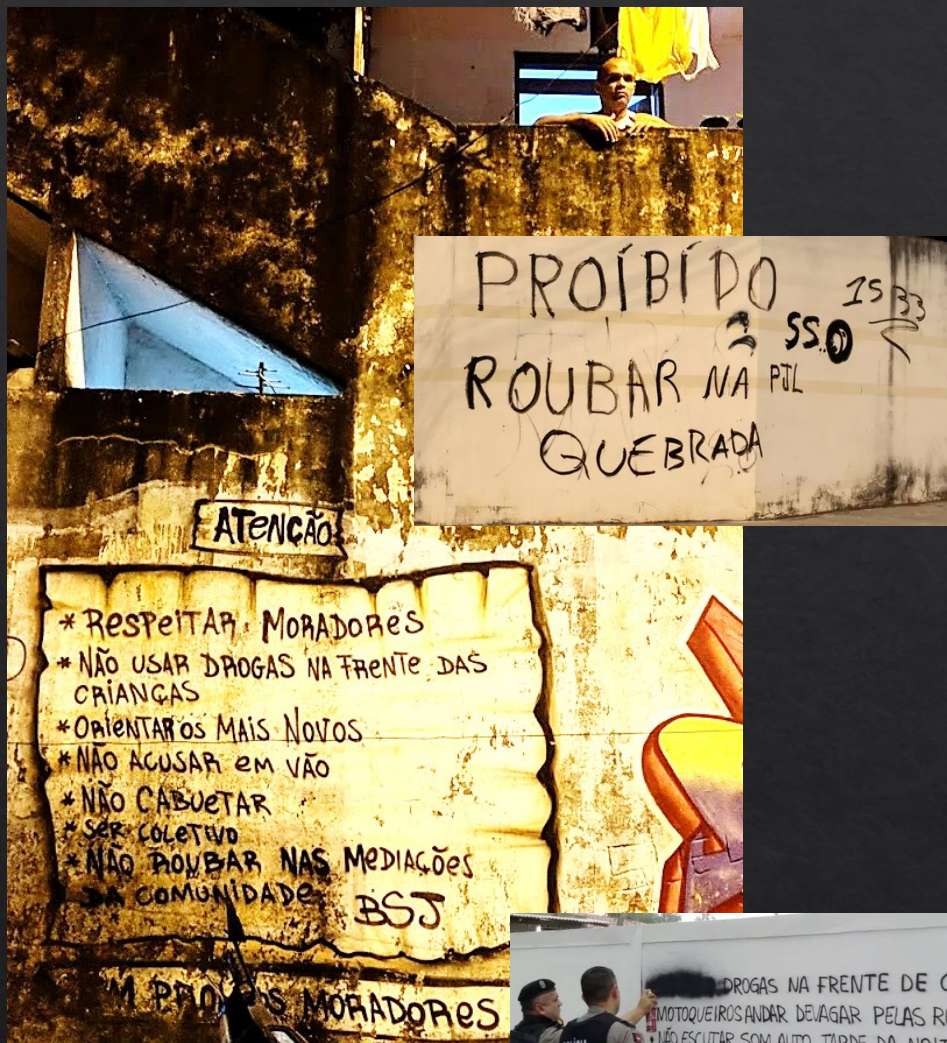 PROÍBÍDO
15 33
SS
ROUBAR NA PJL
QUEBRADA
ATENÇÃO
* RESPEITAR MORADORES
* NÃO USAR DROGAS NA FRENTE DAS
CRIANÇAS
* ORIENTAR OS MAIS NOVOS
* NÃO ACUSAR EM VÃO
* NÃO CABUETAR
* SER COLETIVO
* NÃO ROUBAR NAS MEDIAÇÕES
DA COMUNIDADE
BSJ
MORADORES
DROGAS NA FRENTE DE
MOTOQUEIROS ANDAR DEVAGAR PELAS
NÃO ESCUTAR SOM ALTO TARDE DA